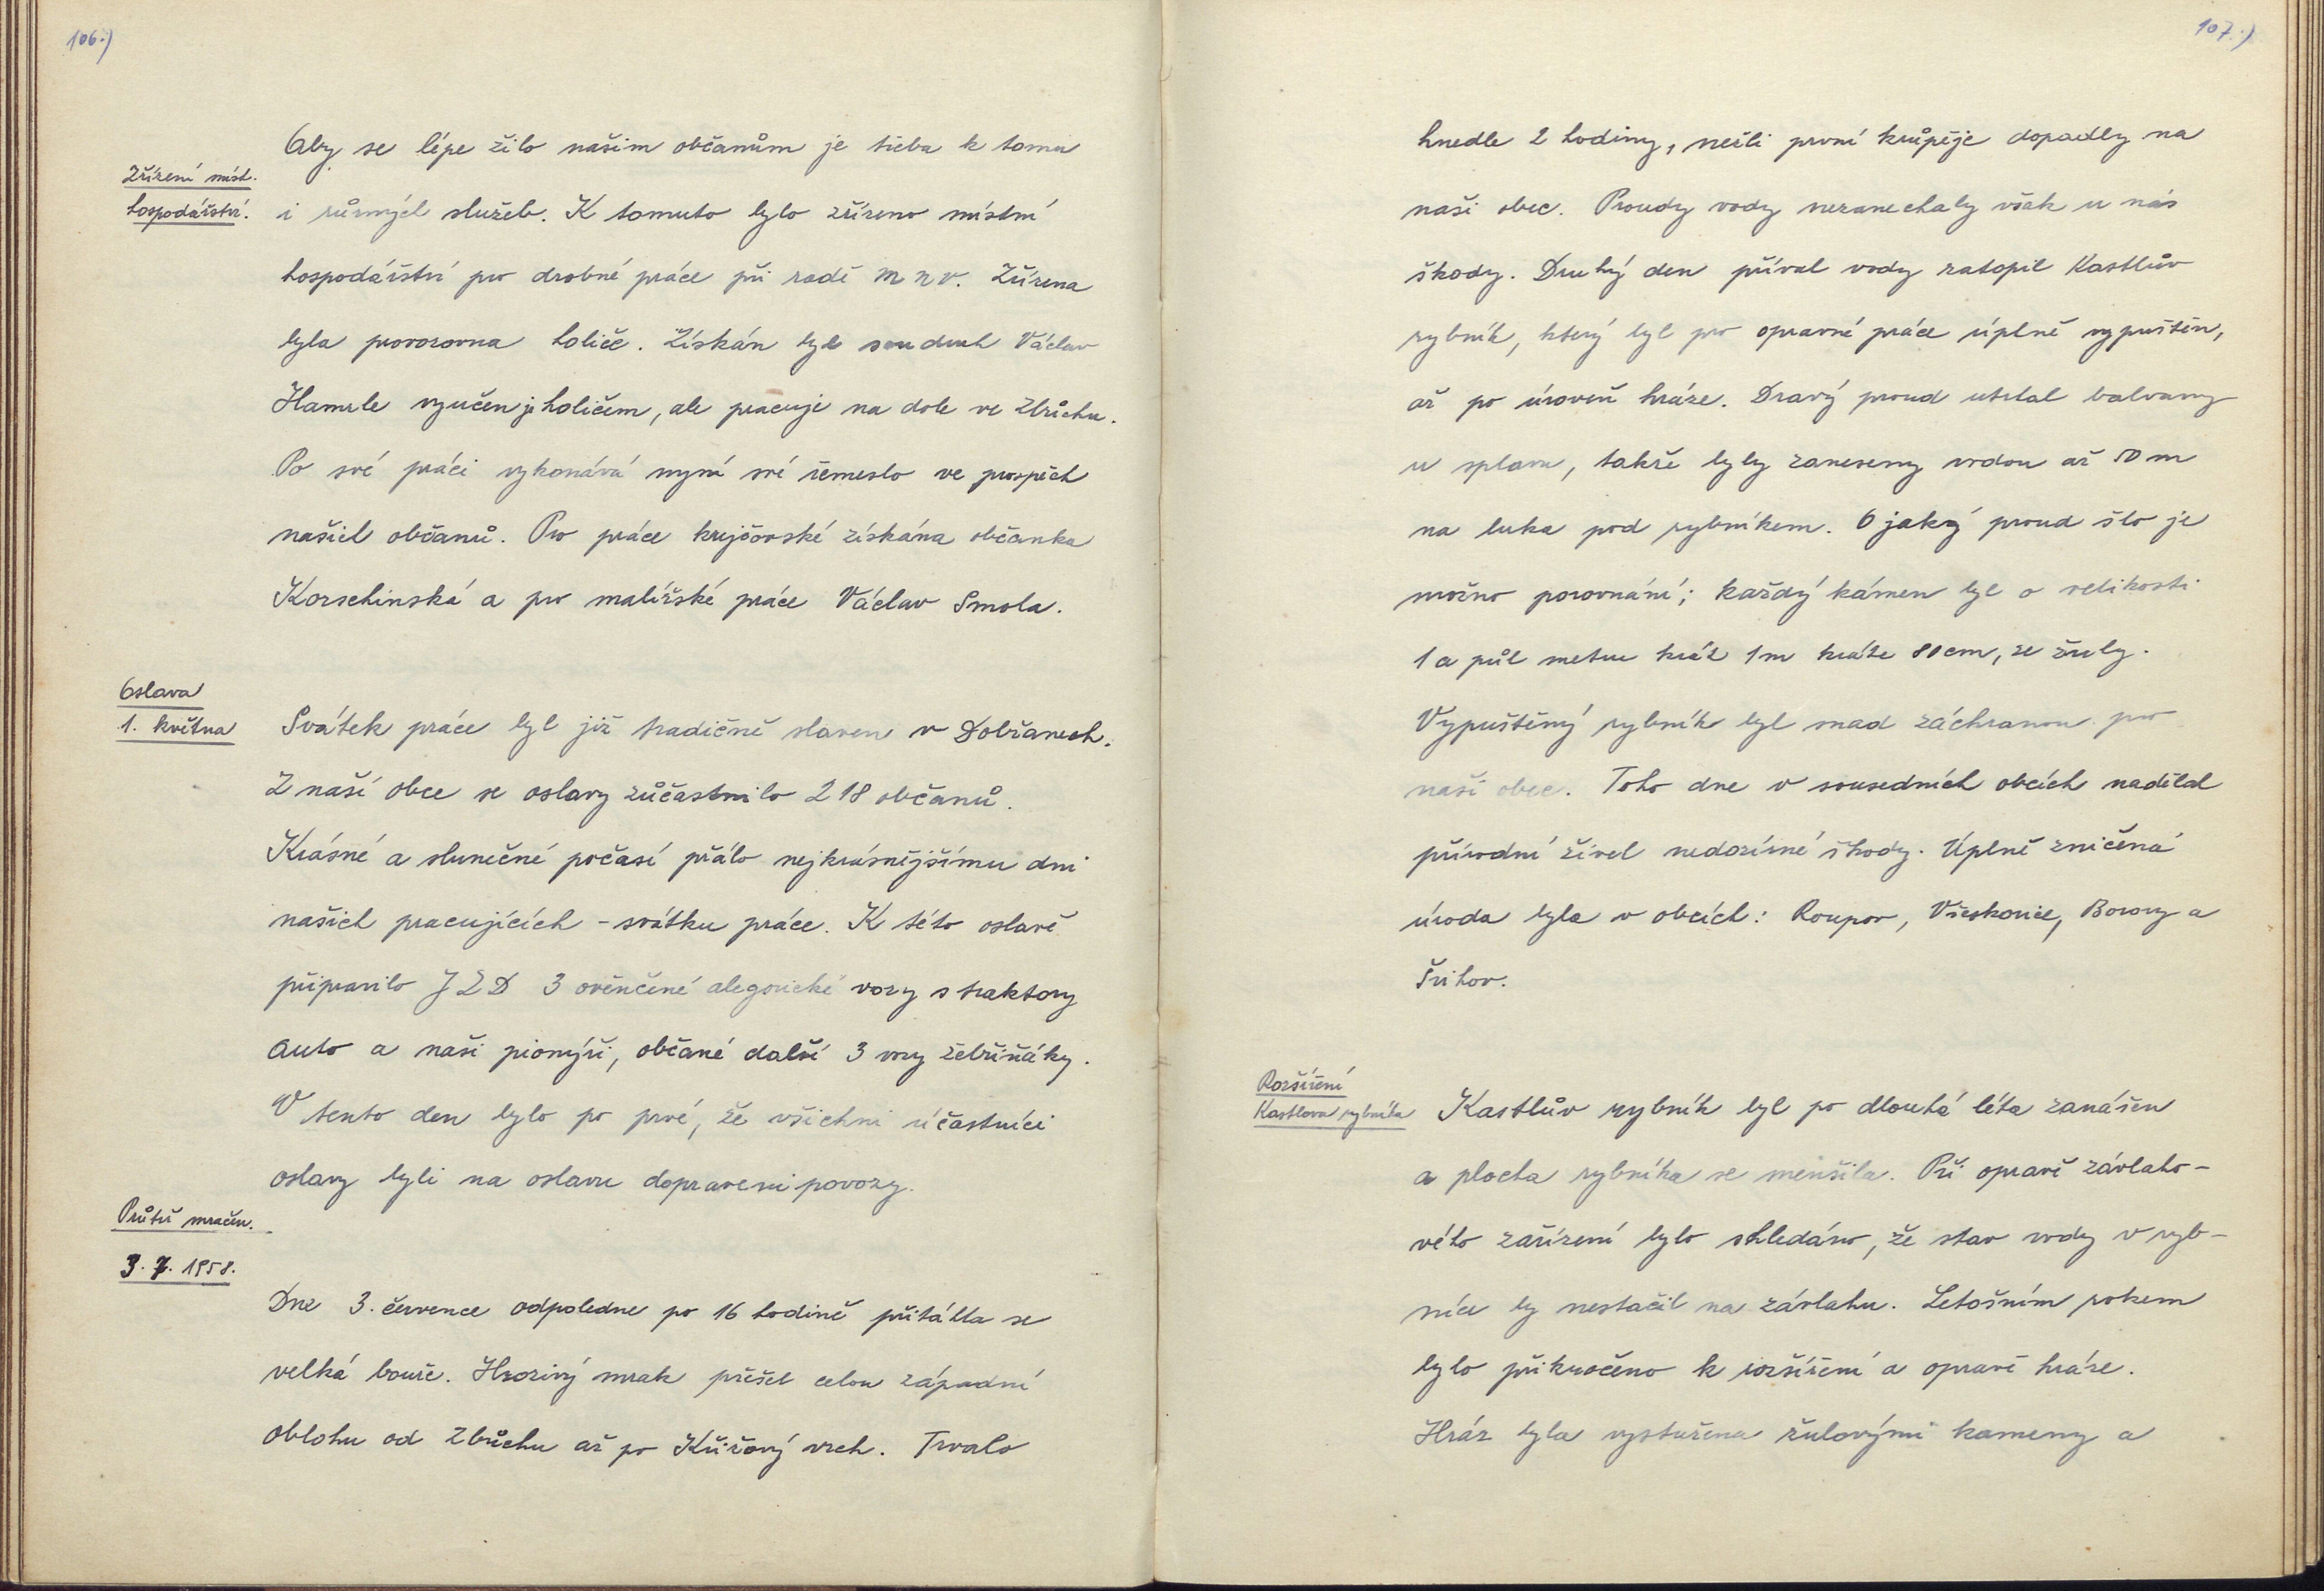 106.)
Zřízení míst.
hospodářství.
Aby se lépe žilo našim občanům je třeba k tomu
i různých služeb. K tomuto bylo zřízeno místní
hospodářství pro drobné práce při radě MNV. Zřízena
byla provozovna holiče. Získán byl soudruh Václav
Hamrle vyučen je holičem, ale pracuje na dole ve Zbůchu.
Po své práci vykonává nyní své řemeslo ve prospěch
našich občanů. Pro práce krejčovské získána občanka
Korschinská a pro malířské práce Václav Smola.
Oslava
1. května
Svátek práce byl již tradičně slaven v Dobřanech.
Z naší obce se oslavy zůčastnilo 218 občanů.
Krásné a slunečné počasí přálo nejkrásnějšímu dni
našich pracujících - svátku práce. K této oslavě
připravilo JZD 3 ověnčené alegorické vozy s traktory
auto a naši pionýři, občané další 3 vozy žebřiňáky.
V tento den bylo po prvé, že všichni účastníci
oslavy byli na oslavu dopraveni povozy.
Průtrž mračen.
3. 7. 1958.
Dne 3. července odpoledne po 16 hodině přitáhla se
velká bouře. Hrozivý mrak přešel celou západní
oblohu od Zbůchu až po Křížový vrch. Trvalo
107.)
hnedle 2 hodiny, nežli první krůpěje dopadly na
naši obec. Proudy vody nezanechaly však u nás
škody. Druhý den příval vody zatopil Kastlův
rybník, který byl pro opravné práce úplně vypuštěn,
až po úroveň hráze. Dravý proud utrhal balvany
u splavu, takže byly zaneseny vodou až 50 m
na luka pod rybníkem. O jaký proud šlo je
možno porovnání; každý kámen byl o velikosti
1 a půl metru krát 1 m kráte 80 cm, ze žuly.
Vypuštěný rybník byl snad záchranou pro
naši obec. Toho dne v sousedních obcích nadělal
přírodní živel nedozírné škody. Úplně zničená
úroda byla v obcích: Roupov, Vřeskovice, Borovy a
Švihov.
Rozšíření
Kastlova rybníka
Kastlův rybník byl po dlouhá léta zanášen
a plocha rybníka se menšila. Při opravě závlaho-
vého zařízení bylo shledáno, že stav vody v ryb-
níce by nestačil na závlahu. Letošním rokem
bylo přikročeno k rozšíření a opravě hráze.
Hráz byla vystužena žulovými kameny a